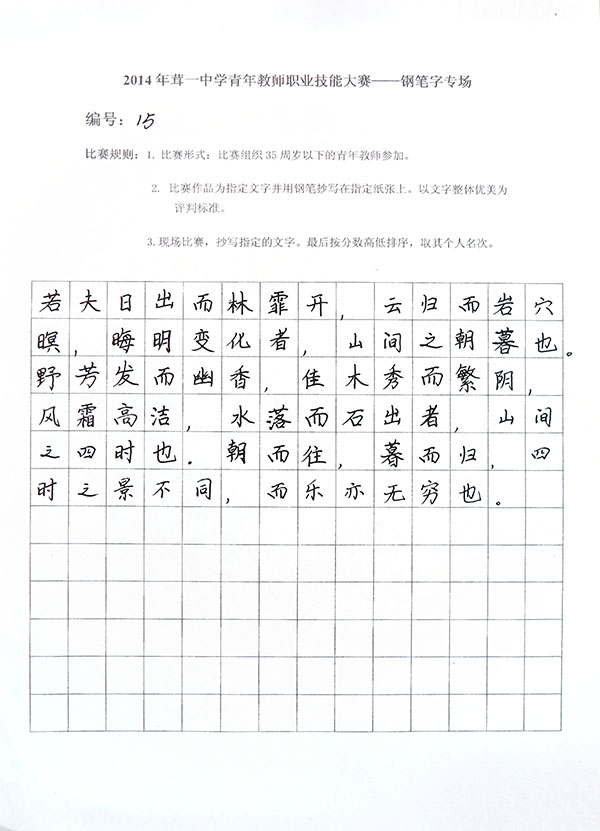 2014年茸一中学青年教师职业技能大赛——钢笔字专场
编号：15
比赛规则：1. 比赛形式：比赛组织35周岁以下的青年教师参加。
2. 比赛作品为指定文字并用钢笔抄写在指定纸张上。以文字整体优美为
评判标准。
3.现场比赛，抄写指定的文字。最后按分数高低排序，取其个人名次。
若夫日出而林霏开，云归而岩穴
暝，晦明变化者，山间之朝暮也。
野芳发而幽香，佳木秀而繁阴，
风霜高洁，水落而石出者，山间
之四时也．朝而往，暮而归，四
时之景不同，而乐亦无穷也。